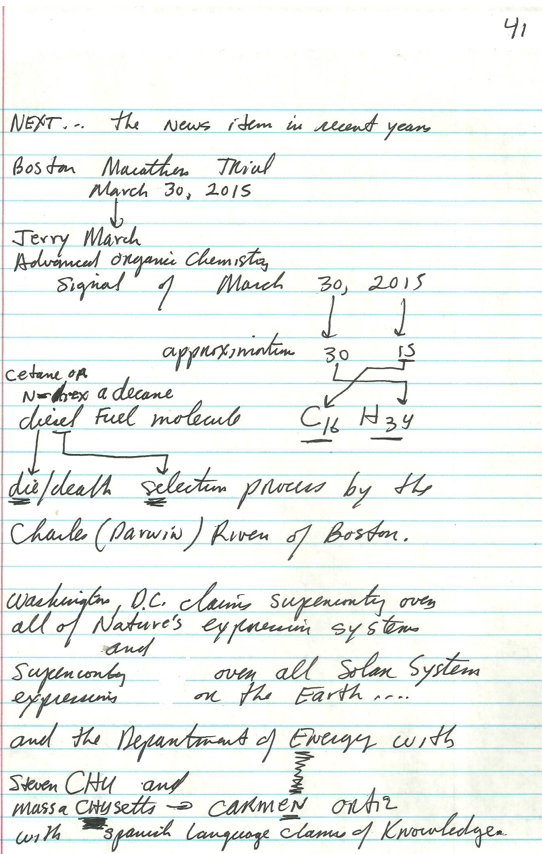 41
NEXT... the News item in recent years
Boston Marathon Trial
March 30, 2015
Jerry March
Advanced Organic Chemistry
Signal of March 30, 2015
approximation 30 15
cetane or
N-hexadecane
diesel Fuel molecule C16 H34
die/death selection process by the
Charles (Darwin) River of Boston.
Washington, D.C. claims superiority over
all of Nature's expression systems
and
Superiority over all Solar System
expressions on the Earth....
and the Department of Energy with
Steven CHU and
massa CHUsetts → CARMEN ortiz
with Spanish Language claims of Knowledge.